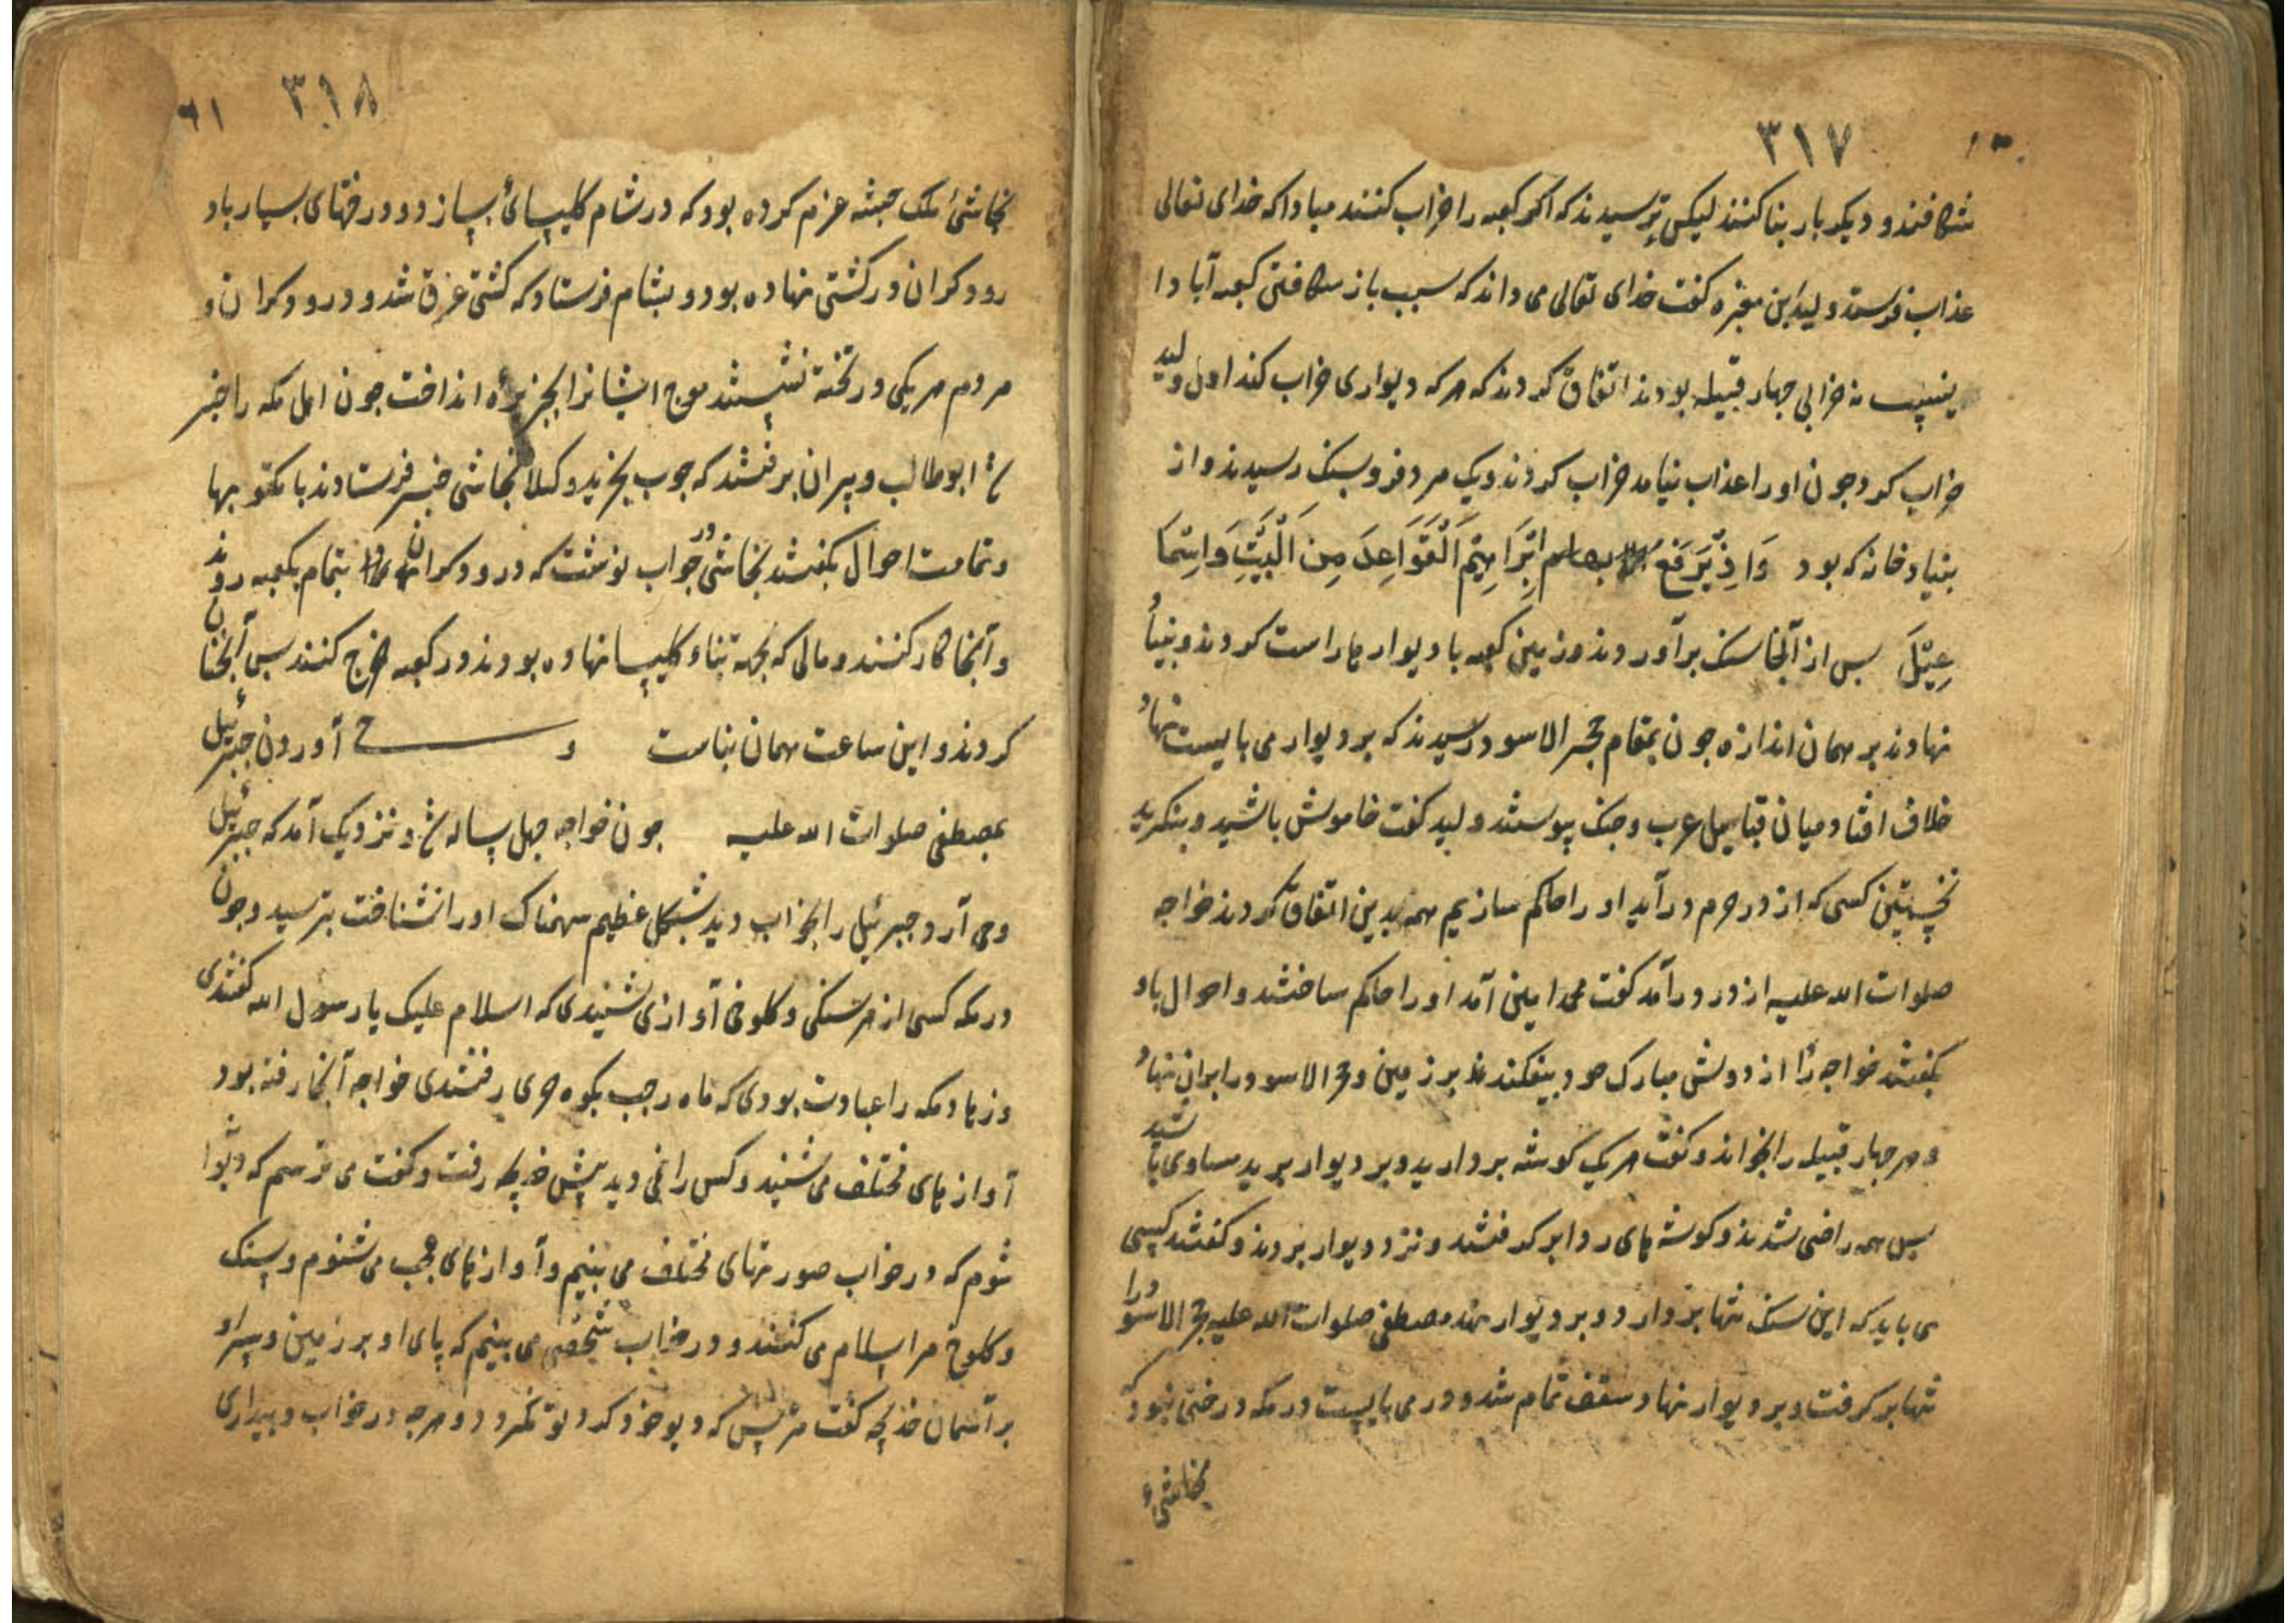 ۳۱۷
شکافند و دیکر بار بنا کنند لیکن ترسیدند که اکر کعبه را خراب کنند مبادا که خدای تعالی
عذاب فرستد ولید بن مغیره کفت خدای تعالی می داند که سبب باز شکافتن کعبه آبادا
نیست نه خرابی جهار قبیله بودند اتفاق کردند که هر که دیواری خراب کند اول ولید
خراب کرد و جون او را عذاب نیامد خراب کردند و یک مرد فرو بسنک رسیدند و از
بنیاد خانه که بود وَاِذْ یَرْفَعُ اِبْرَاهِیمُ الْقَوَاعِدَ مِنَ الْبَیْتِ وَاِسْمَا
عِیْلَ بس از آنجا سنک برآوردند و زمین کعبه با دیوار ها راست کردند و بنیاد
نهادند بر همان اندازه جون بمقام حجر الاسود رسیدند که بر دیوار می بایست نهاد
خلاف افتاد میان قبایل عرب و جنک پیوستند ولید کفت خاموش باشید و بنکرید
نخستین کسی که از در حرم درآید او را حاکم سازیم همه بدین اتفاق کردند خواجه
صلوات الله علیه از در درآمد کفت محمد امین آمد او را حاکم ساختند و احوال باو
بکفتند خواجه ردا از دوش مبارک خود بیفکند بر زمین و حجر الاسود را بران نهاد
و هر جهار قبیله را بخواند و کفت هر یک کوشه بردارید و بر دیوار برید مساوی باشید
پس همه راضی شدند و کوشه های ردا بر کرفتند و نزد دیوار بردند و کفتند کسی
می باید که این سنک تنها بردارد و بر دیوار نهد مصطفی صلوات الله علیه حجر الاسود را
تنها بر کرفت و بر دیوار نهاد و سقف تمام شد و در می بایست در مکه درختی نبود که
نجاشیء
۳۱۸ ۶۱
نجاشیٔ ملک حبشه عزم کرده بود که در شام کلیسائی بسازد و درختهای بسیار با د
رودکران در کشتی نهاده بود و بشام فرستاد که کشتی غرق شد و درودکران و
مردم هر یکی در تخته نشستند موج ایشانرا بجزیره انداخت جون اهل مکه را خبر
شد ابوطالب و پیران برفتند که جوب بخرید وکلا نجاشی خبر فرستادند با مکتوبها
و تمامت احوال بکفتند نجاشی در جواب نوشت که درودکران بتمام بکعبه روند
و آنجا کار کنند و مالی که بجهة بناء کلیسا نهاده بودند در کعبه خرج کنند بس آنجنان
کردند و این ساعت همان بناست و ح آوردن جبرئیل
بمصطفی صلوات الله علیه جون خواجه جهل ساله شد و نزدیک آمد که جبرئیل
وحی آرد جبرئیل را بخواب دید بشکل عظیم سهمناک او را نشناخت بترسید و جون
در مکه کسی از هر سنکی و کلوخی آوازی شنیدی که السلام علیک یا رسول الله کفتندی
و زهاد مکه را عبادت بودی که ماه رجب بکوه حری رفتندی خواجه آنجا رفته بود
آواز های مختلف می شنید و کس را نمی دید پیش خدیجه رفت و کفت می ترسم که دیوا
شوم که در خواب صورتهای مختلف می بینم و آواز های عجب می شنوم و سنک
و کلوخ مرا سلام می کنند و در خواب شخصی می بینم که پای او بر زمین و سر او
بر آسمان خدیجه کفت مترس که دیو خود کرد تو نکردد و هرجه در خواب و بیداری